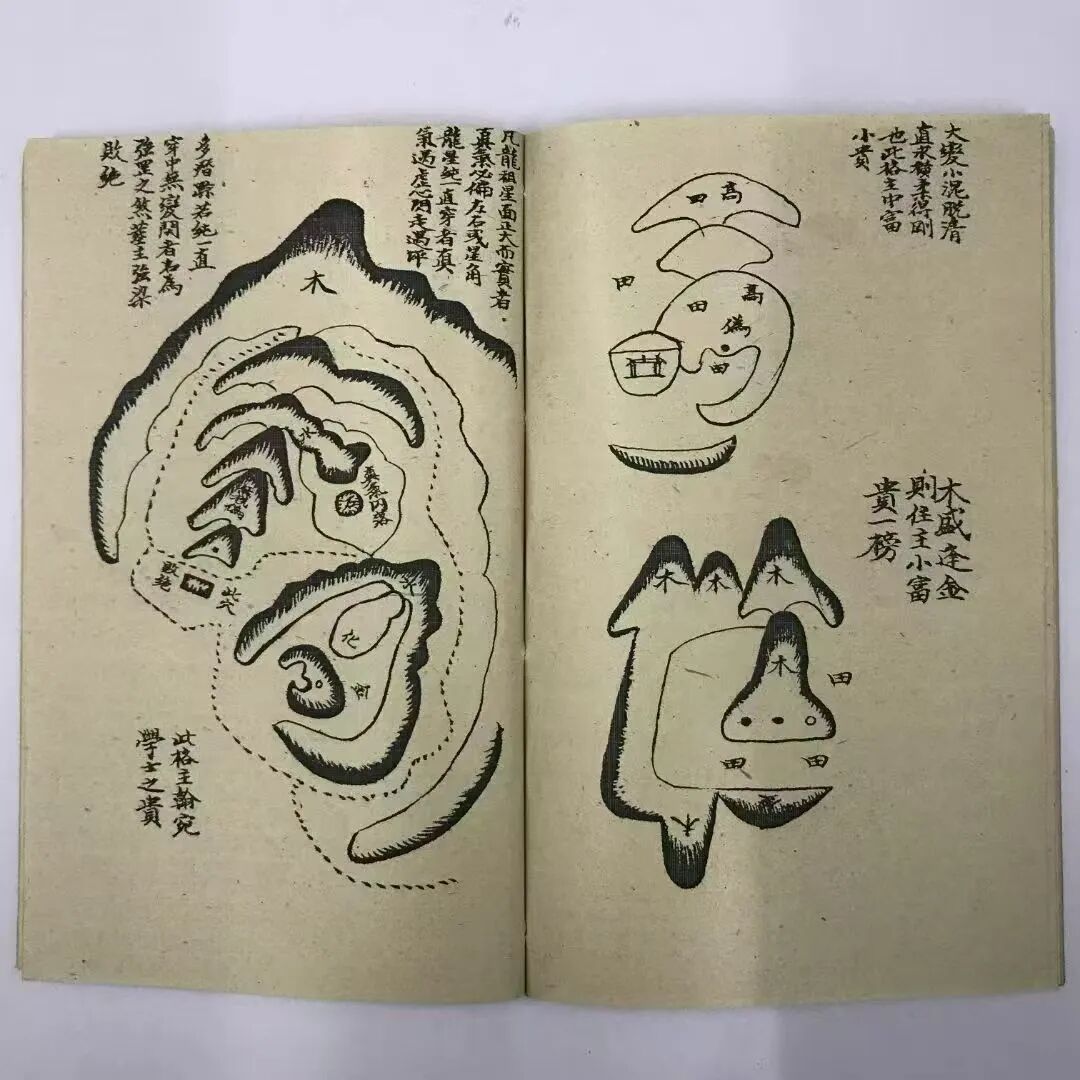 大變小泥脫清
直來橫柔得剛
也此格主中富
小貴
高
田
田
田
高
偽
田
木盛逢金
則住主小富
貴一榜
木
木
木
木
田
田
田
木
凡龍祖星面正大而實者
真氣必偏左右或星角
龍星純一直穿者真
氣過虛心門走過坪
多潛踪若純一直
穿中無變閃者名為
強黑之煞葬主強梁
敗絕
木
水
真氣內落
穴
敗絕
此穴
水
此格主翰宛
學士之貴